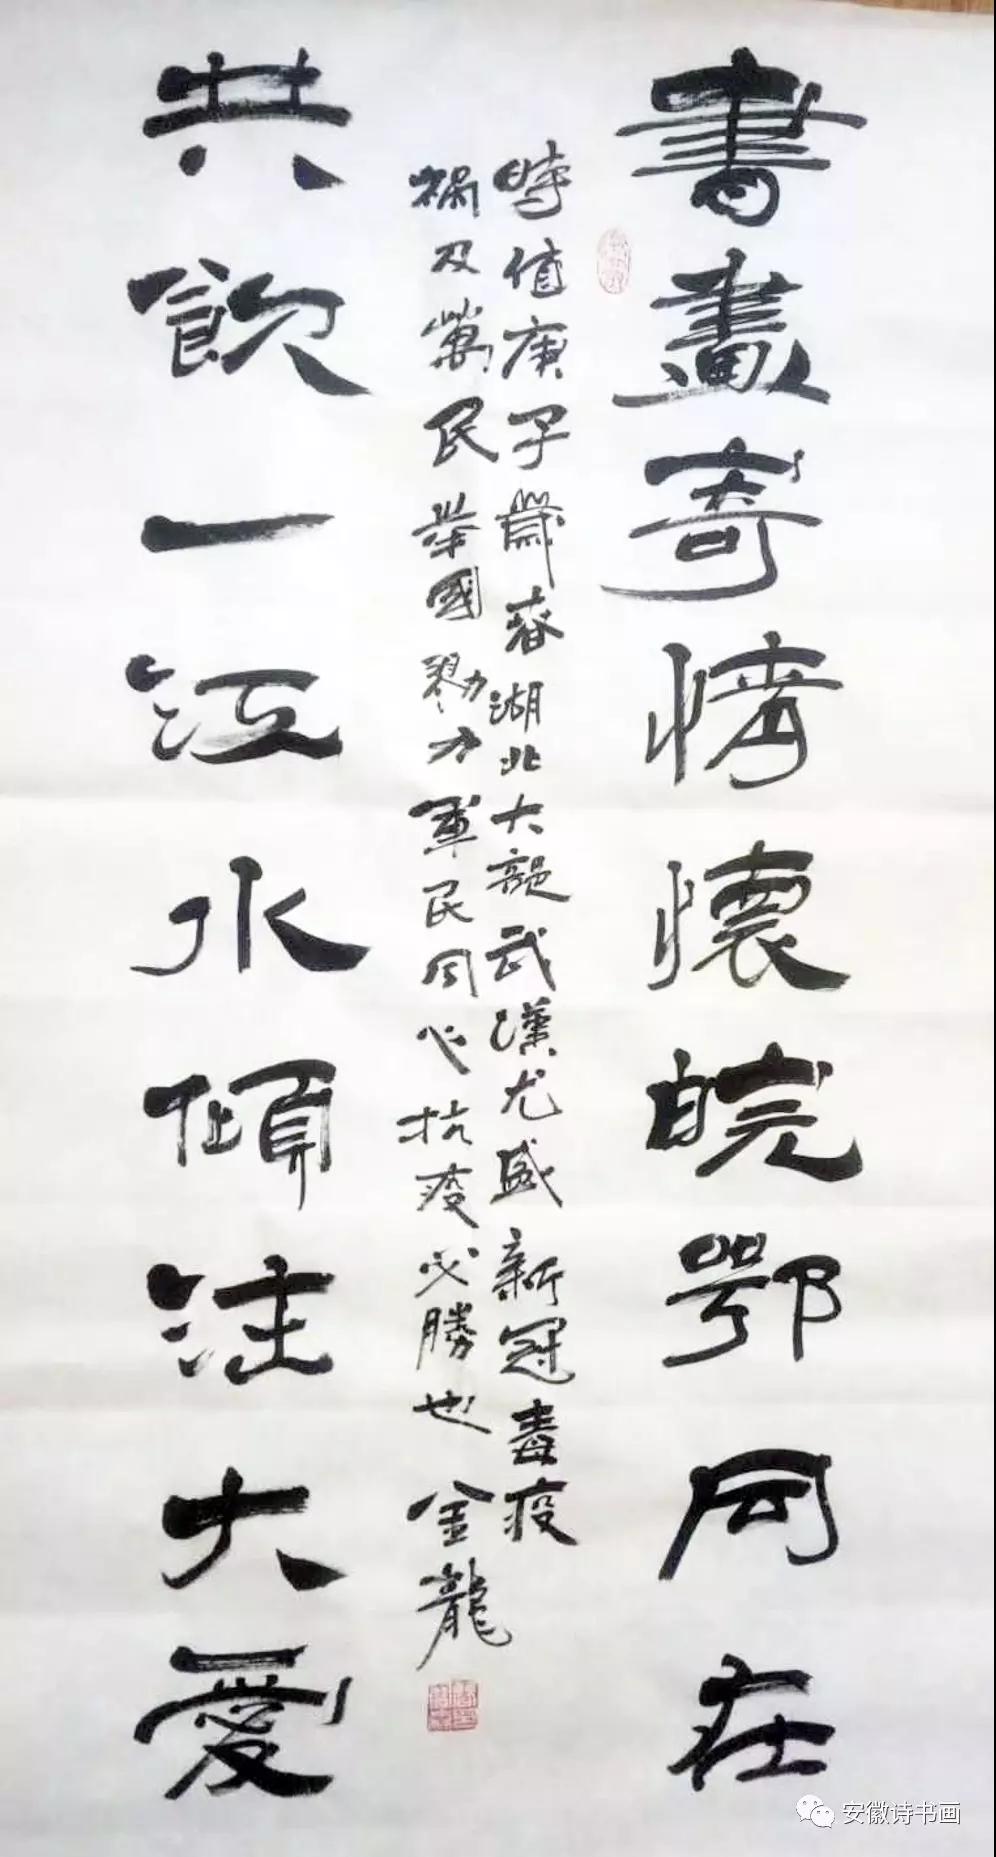 書畫寄情懷皖鄂同在
時值庚子歲春湖北大疫武漢尤盛新冠毒疫
禍及萬民舉國勠力軍民同心抗疫必勝也 金龍
共飲一江水傾注大愛
安徽诗书画